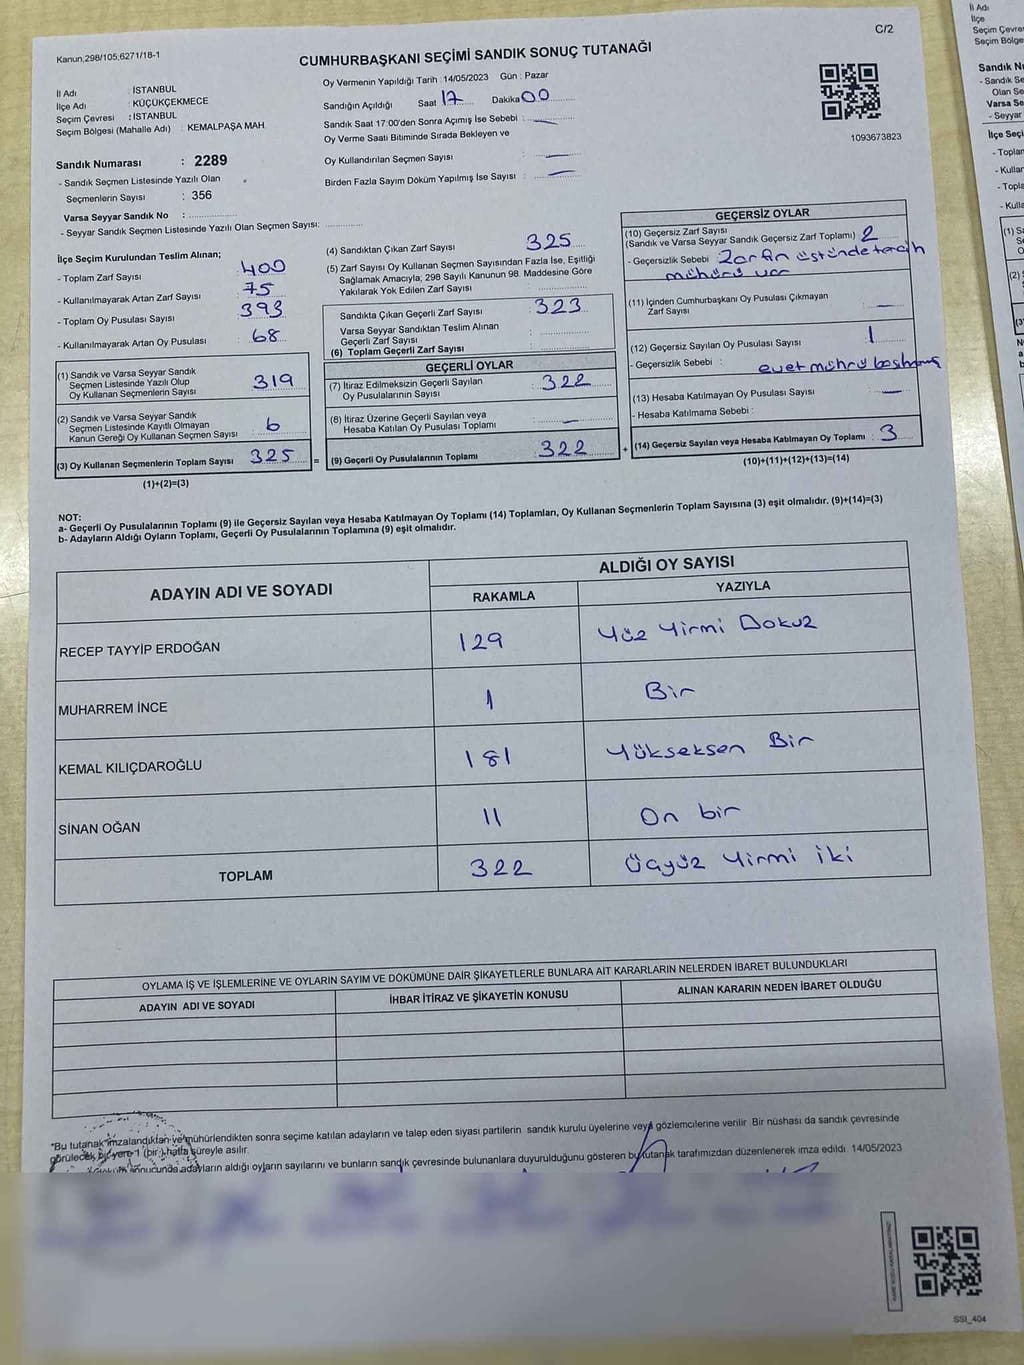 Kanun,298/105;6271/18-1
C/2
CUMHURBAŞKANI SEÇİMİ SANDIK SONUÇ TUTANAĞI
İl Adı : İSTANBUL
İlçe Adı : KÜÇÜKÇEKMECE
Seçim Çevresi : İSTANBUL
Seçim Bölgesi (Mahalle Adı) : KEMALPAŞA MAH.
Sandık Numarası : 2289
- Sandık Seçmen Listesinde Yazılı Olan
Seçmenlerin Sayısı : 356
Varsa Seyyar Sandık No :
- Seyyar Sandık Seçmen Listesinde Yazılı Olan Seçmen Sayısı:
Oy Vermenin Yapıldığı Tarih : 14/05/2023 Gün : Pazar
Sandığın Açıldığı Saat 17 Dakika 00
Sandık Saat 17:00'den Sonra Açımış İse Sebebi : —
Oy Verme Saati Bitiminde Sırada Bekleyen ve
Oy Kullandırılan Seçmen Sayısı : —
Birden Fazla Sayım Döküm Yapılmış İse Sayısı : —
1093673823
İlçe Seçim Kurulundan Teslim Alınan;
- Toplam Zarf Sayısı : 400
- Kullanılmayarak Artan Zarf Sayısı : 75
- Toplam Oy Pusulası Sayısı : 393
- Kullanılmayarak Artan Oy Pusulası : 68
(1) Sandık ve Varsa Seyyar Sandık
Seçmen Listesinde Yazılı Olup
Oy Kullanan Seçmenlerin Sayısı : 319
(2) Sandık ve Varsa Seyyar Sandık
Seçmen Listesinde Kayıtlı Olmayan
Kanun Gereği Oy Kullanan Seçmen Sayısı : 6
(3) Oy Kullanan Seçmenlerin Toplam Sayısı : 325
(1)+(2)=(3)
(4) Sandıktan Çıkan Zarf Sayısı : 325
(5) Zarf Sayısı Oy Kullanan Seçmen Sayısından Fazla İse, Eşitliği
Sağlamak Amacıyla; 298 Sayılı Kanunun 98. Maddesine Göre
Yakılarak Yok Edilen Zarf Sayısı :
Sandıkta Çıkan Geçerli Zarf Sayısı : 323
Varsa Seyyar Sandıktan Teslim Alınan
Geçerli Zarf Sayısı :
(6) Toplam Geçerli Zarf Sayısı :
GEÇERLİ OYLAR
(7) İtiraz Edilmeksizin Geçerli Sayılan
Oy Pusulalarının Sayısı : 322
(8) İtiraz Üzerine Geçerli Sayılan veya
Hesaba Katılan Oy Pusulası Toplamı : —
= (9) Geçerli Oy Pusulalarının Toplamı : 322 +
GEÇERSİZ OYLAR
(10) Geçersiz Zarf Sayısı
(Sandık ve Varsa Seyyar Sandık Geçersiz Zarf Toplamı) : 2
- Geçersizlik Sebebi : Zarfın üstünde tercih
mührü var
(11) İçinden Cumhurbaşkanı Oy Pusulası Çıkmayan
Zarf Sayısı : —
(12) Geçersiz Sayılan Oy Pusulası Sayısı : 1
- Geçersizlik Sebebi : evet mührü basılmamış
(13) Hesaba Katılmayan Oy Pusulası Sayısı : —
- Hesaba Katılmama Sebebi :
(14) Geçersiz Sayılan veya Hesaba Katılmayan Oy Toplamı : 3
(10)+(11)+(12)+(13)=(14)
NOT:
a- Geçerli Oy Pusulalarının Toplamı (9) ile Geçersiz Sayılan veya Hesaba Katılmayan Oy Toplamı (14) Toplamları, Oy Kullanan Seçmenlerin Toplam Sayısına (3) eşit olmalıdır. (9)+(14)=(3)
b- Adayların Aldığı Oyların Toplamı, Geçerli Oy Pusulalarının Toplamına (9) eşit olmalıdır.
ADAYIN ADI VE SOYADI
ALDIĞI OY SAYISI
RAKAMLA YAZIYLA
RECEP TAYYİP ERDOĞAN 129 Yüz Yirmi Dokuz
MUHARREM İNCE 1 Bir
KEMAL KILIÇDAROĞLU 181 Yükseksen Bir
SİNAN OĞAN 11 On bir
TOPLAM 322 Üçyüz Yirmi iki
OYLAMA İŞ VE İŞLEMLERİNE VE OYLARIN SAYIM VE DÖKÜMÜNE DAİR ŞİKAYETLERLE BUNLARA AİT KARARLARIN NELERDEN İBARET BULUNDUKLARI
ADAYIN ADI VE SOYADI İHBAR İTİRAZ VE ŞİKAYETİN KONUSU ALINAN KARARIN NEDEN İBARET OLDUĞU
"Bu tutanak imzalandıktan ve mühürlendikten sonra seçime katılan adayların ve talep eden siyasi partilerin sandık kurulu üyelerine veya gözlemcilerine verilir. Bir nüshası da sandık çevresinde
görülecek bir yere 1 (bir) hafta süreyle asılır.
sonucunda adayların aldığı oyların sayılarını ve bunların sandık çevresinde bulunanlara duyurulduğunu gösteren bu tutanak tarafımızdan düzenlenerek imza edildi. 14/05/2023
SSI_404
İl Adı
İlçe
Seçim Çevre
Seçim Bölge
Sandık Nu
- Sandık Se
Olan Se
Varsa Se
- Seyyar
İlçe Seçi
- Toplar
- Kullar
- Topla
- Kulla